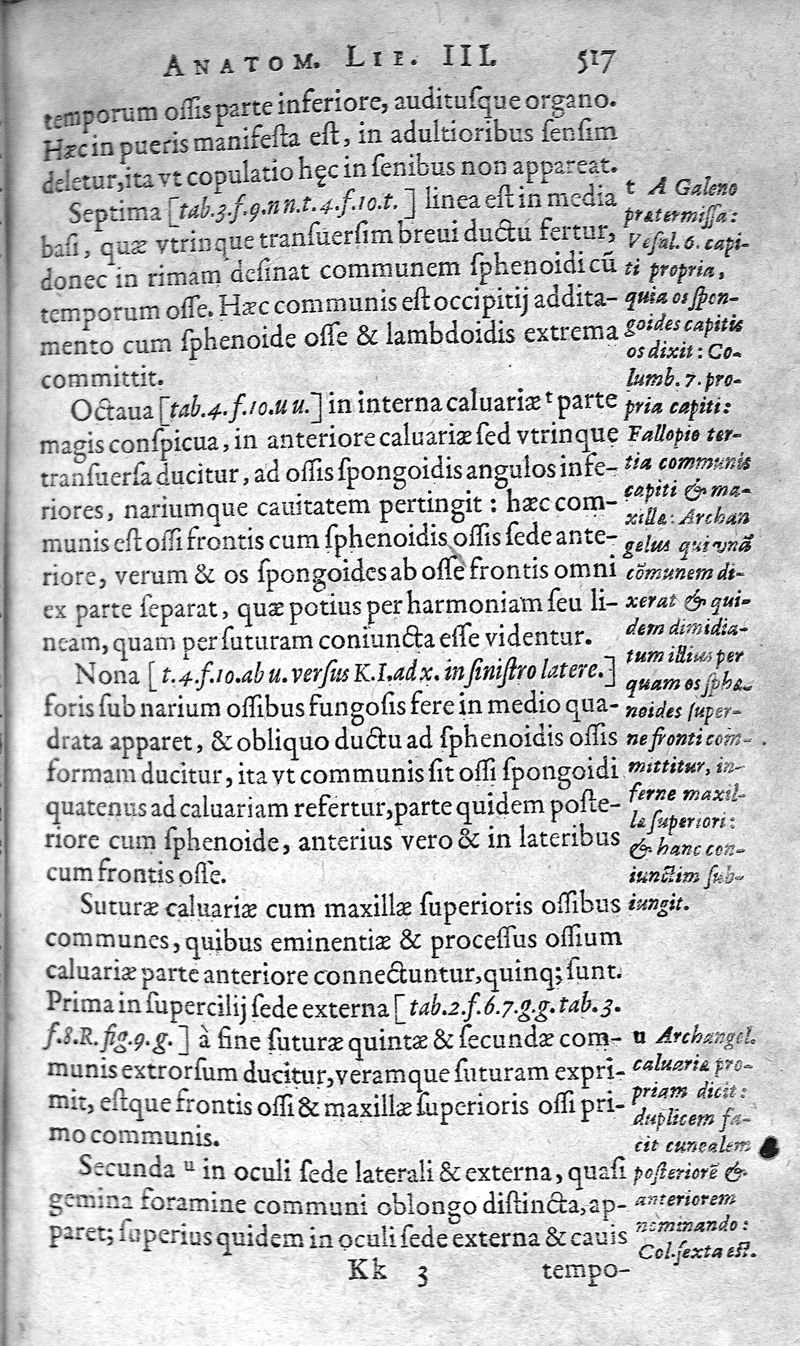 ANATOM. LIB. III. 517
temporum oſſis parte inferiore, audituſque organo.
Hæc in pueris manifeſta eſt, in adultioribus ſenſim
deletur, ita vt copulatio hęc in ſenibus non appareat.
Septima [tab.3.f.9.nn.t.4.f.10.t.] linea eſt in media
baſi, quæ vtrinque tranſuerſim breui ductu fertur,
donec in rimam deſinat communem ſphenoidi cū
temporum oſſe. Hæc communis eſt occipitij addita-
mento cum ſphenoide oſſe & lambdoidis extrema
committit.
Octaua [tab.4.f.10.uu.] in interna caluariæ t parte
magis conſpicua, in anteriore caluariæ ſed vtrinque
tranſuerſa ducitur, ad oſſis ſpongoidis angulos infe-
riores, nariumque cauitatem pertingit : hæc com-
munis eſt oſſi frontis cum ſphenoidis oſſis ſede ante-
riore, verum & os ſpongoides ab oſſe frontis omni
ex parte ſeparat, quæ potius per harmoniam ſeu li-
neam, quam per ſuturam coniuncta eſſe videntur.
Nona [t.4.f.10.ab u. verſus K.I.ad x. in ſiniſtro latere.]
foris ſub narium oſſibus fungoſis fere in medio qua-
drata apparet, & obliquo ductu ad ſphenoidis oſſis
formam ducitur, ita vt communis ſit oſſi ſpongoidi
quatenus ad caluariam refertur, parte quidem poſte-
riore cum ſphenoide, anterius vero & in lateribus
cum frontis oſſe.
Suturæ caluariæ cum maxillæ ſuperioris oſſibus
communes, quibus eminentiæ & proceſſus oſſium
caluariæ parte anteriore connectuntur, quinq; ſunt.
Prima in ſupercilij ſede externa [tab.2.f.6.7.g.g.tab.3.
f.8.R.fig.9.g.] à fine ſuturæ quintæ & ſecundæ com-
munis extrorſum ducitur, veramque ſuturam expri-
mit, eſtque frontis oſſi & maxillæ ſuperioris oſſi pri-
mo communis.
Secunda u in oculi ſede laterali & externa, quaſi
gemina foramine communi oblongo diſtincta, ap-
paret; ſuperius quidem in oculi ſede externa & cauis
Kk 3 tempo-
t A Galeno
prætermiſſa:
Veſal. 6. capi-
ti propria,
quia os ſpon-
goides capitis
os dixit : Co-
lumb. 7. pro-
pria capiti:
Fallopio ter-
tia communis
capiti & ma-
xillæ: Archan
gelus qui vnā
cōmunem di-
xerat & qui-
dem dimidia-
tum illius per
quam os ſphæ-
noides ſuper-
ne fronti com-
mittitur, in-
ferne maxil-
læ ſuperiori:
& hanc con-
iunctim ſub-
iungit.
u Archangel.
caluariæ pro-
priam dicit:
duplicem fa-
cit cunealem
poſteriorē &
anteriorem
nominando:
Col. ſexta eſt.